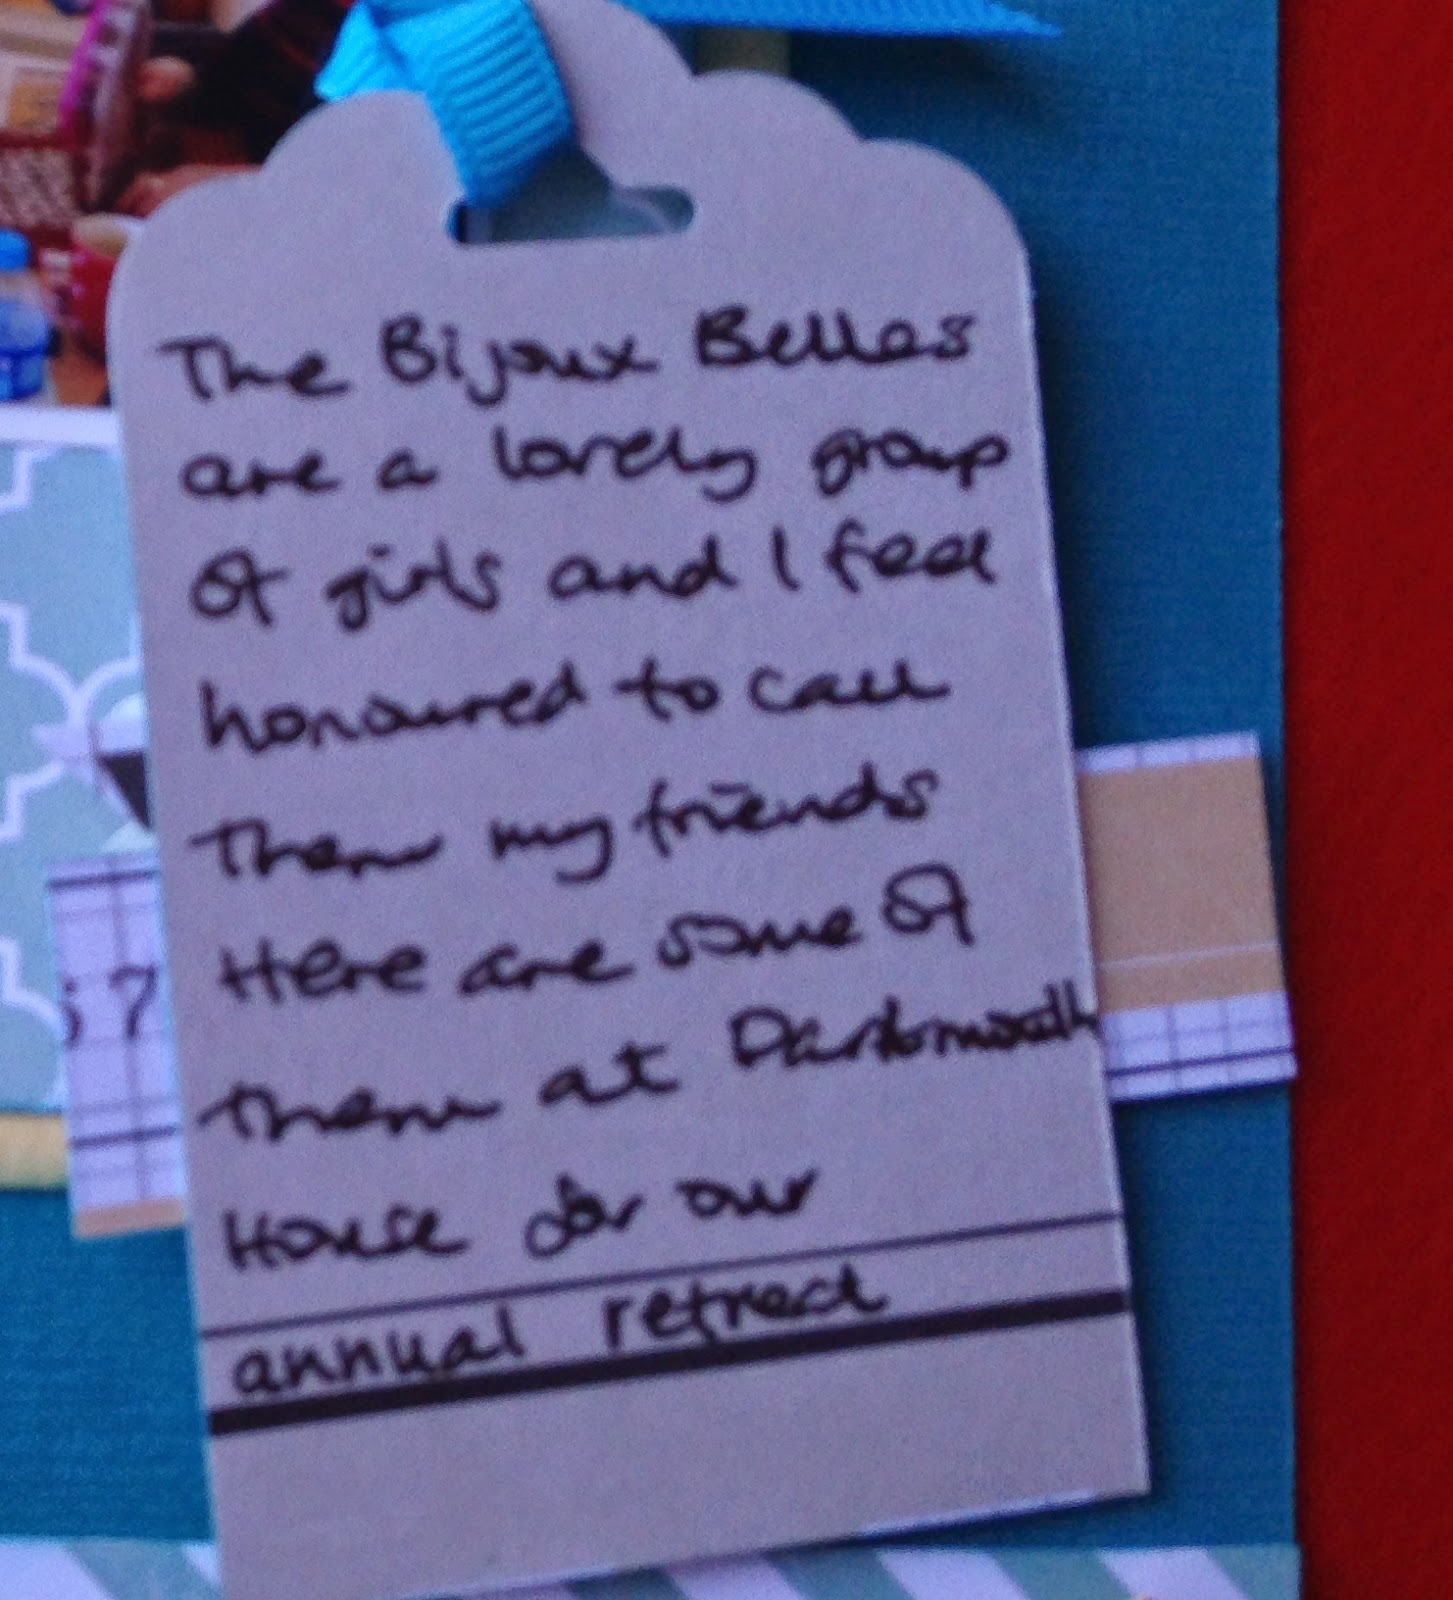 The Bijoux Belles
are a lovely group
of girls and I feel
honoured to call
them my friends
Here are some of
them at Dartmouth
House for our
annual retreat
57